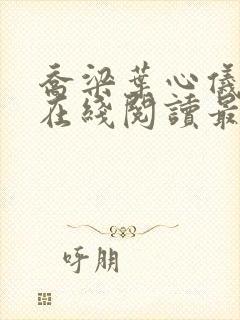 乔梁葉心儀
在綫閱讀最
呼朋